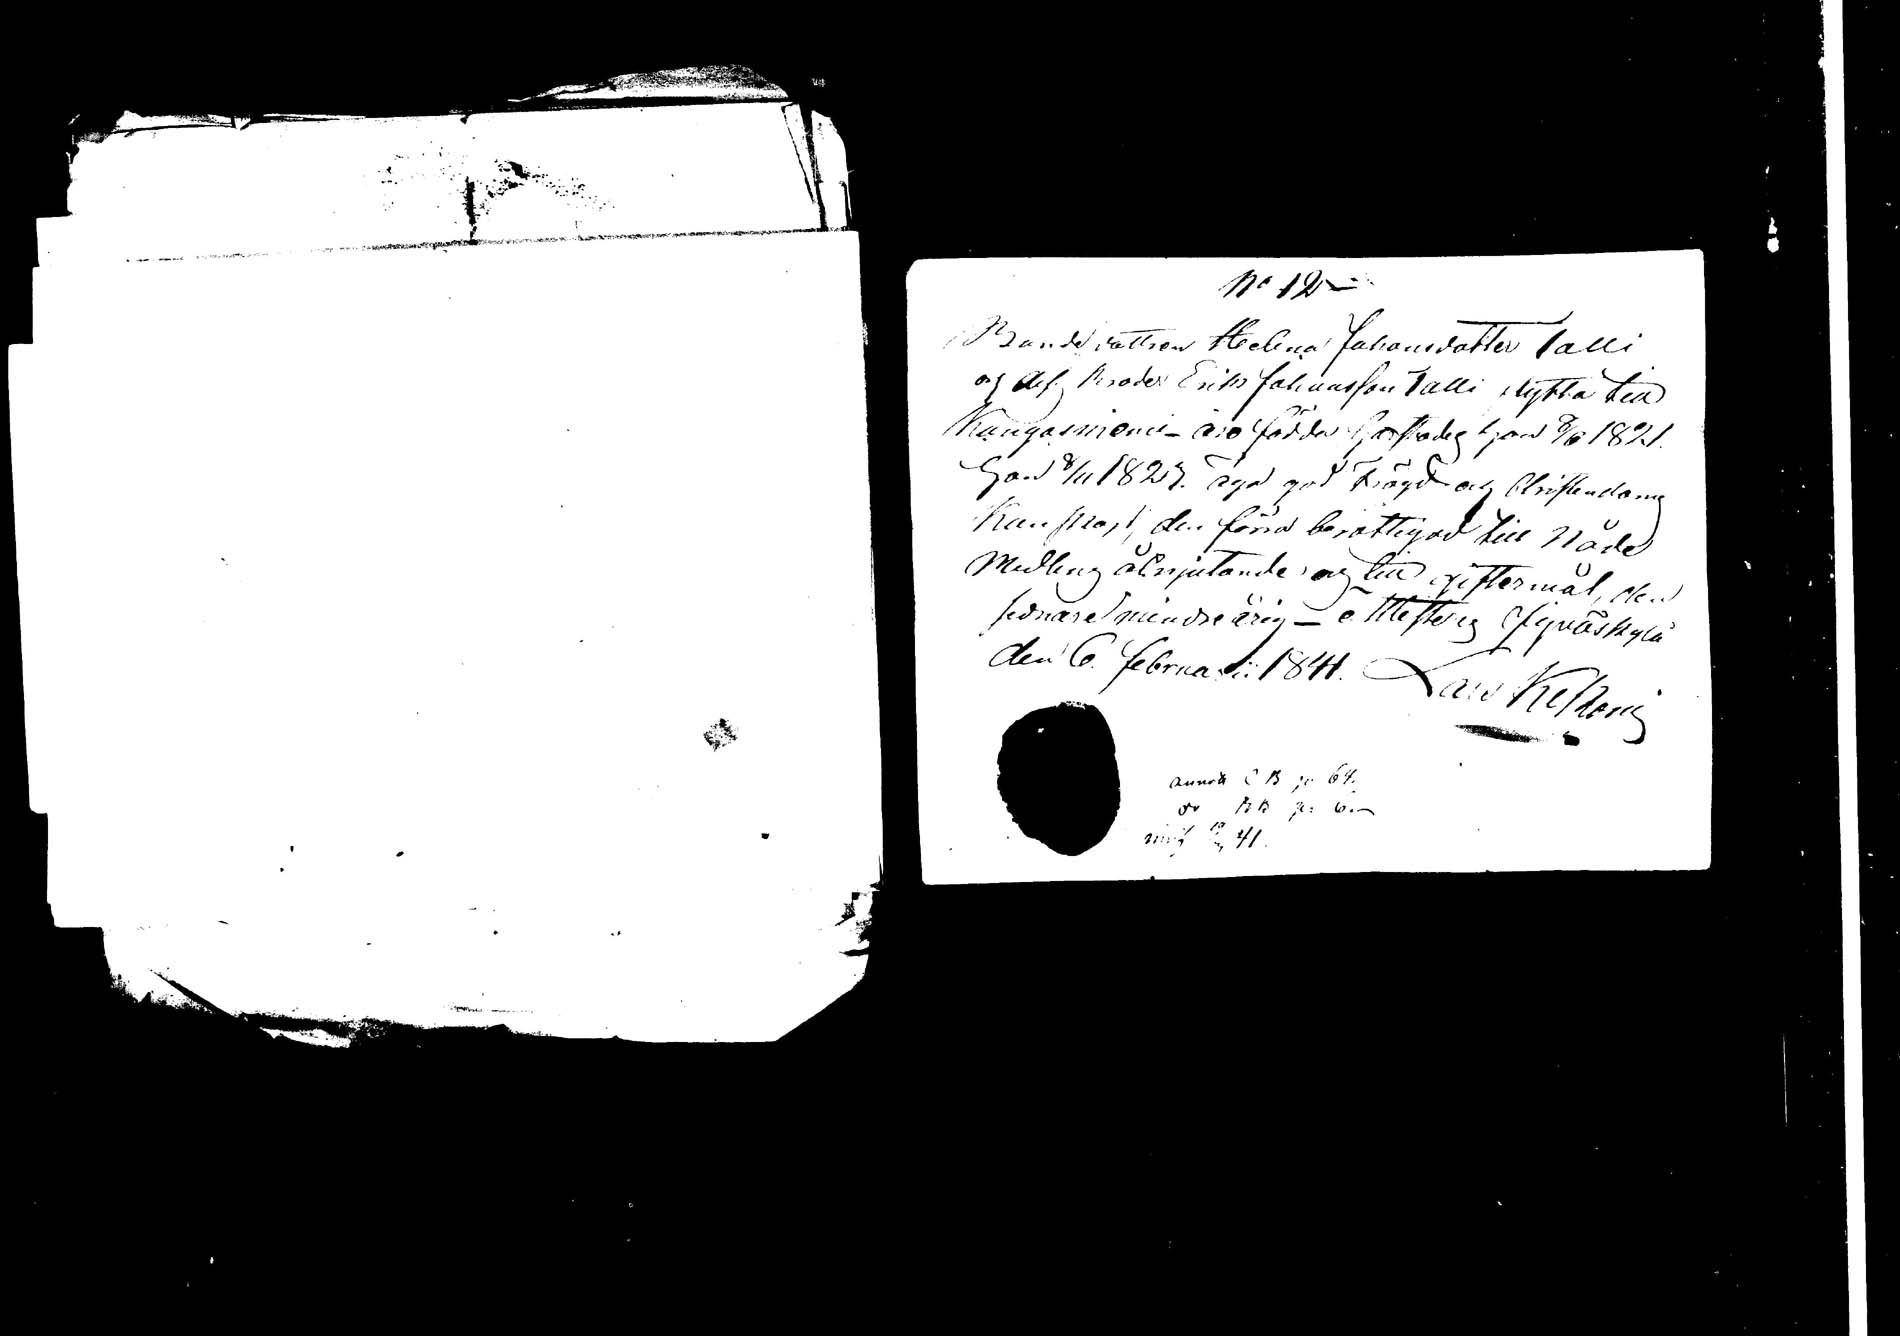 No 12 -
Bondedottren Helena Johansdotter Talli
och des broder Erik Johansson Talli flytta till
Kangasniemi - äro födda hon 1821.
han 8/11 1823. äga god frägd och Christendoms
kunskap, den förra berättigad till Nåde
Medlens åtnjutande och till giftermål, den
sednare minderårig - attesteras Jyväskylä
den 6 februarii 1841. Lars
annot C B p 64.
do B B p:
41.